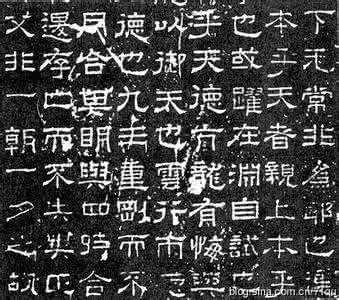 下无常非為邪也進
本乎天者親上本乎
也或躍在淵自試也
乎天德亢龍有悔與
以御天也雲行雨施
德也九三重剛而不
月合其明與四時合
退存亡而不失其正
父非一朝一夕之故